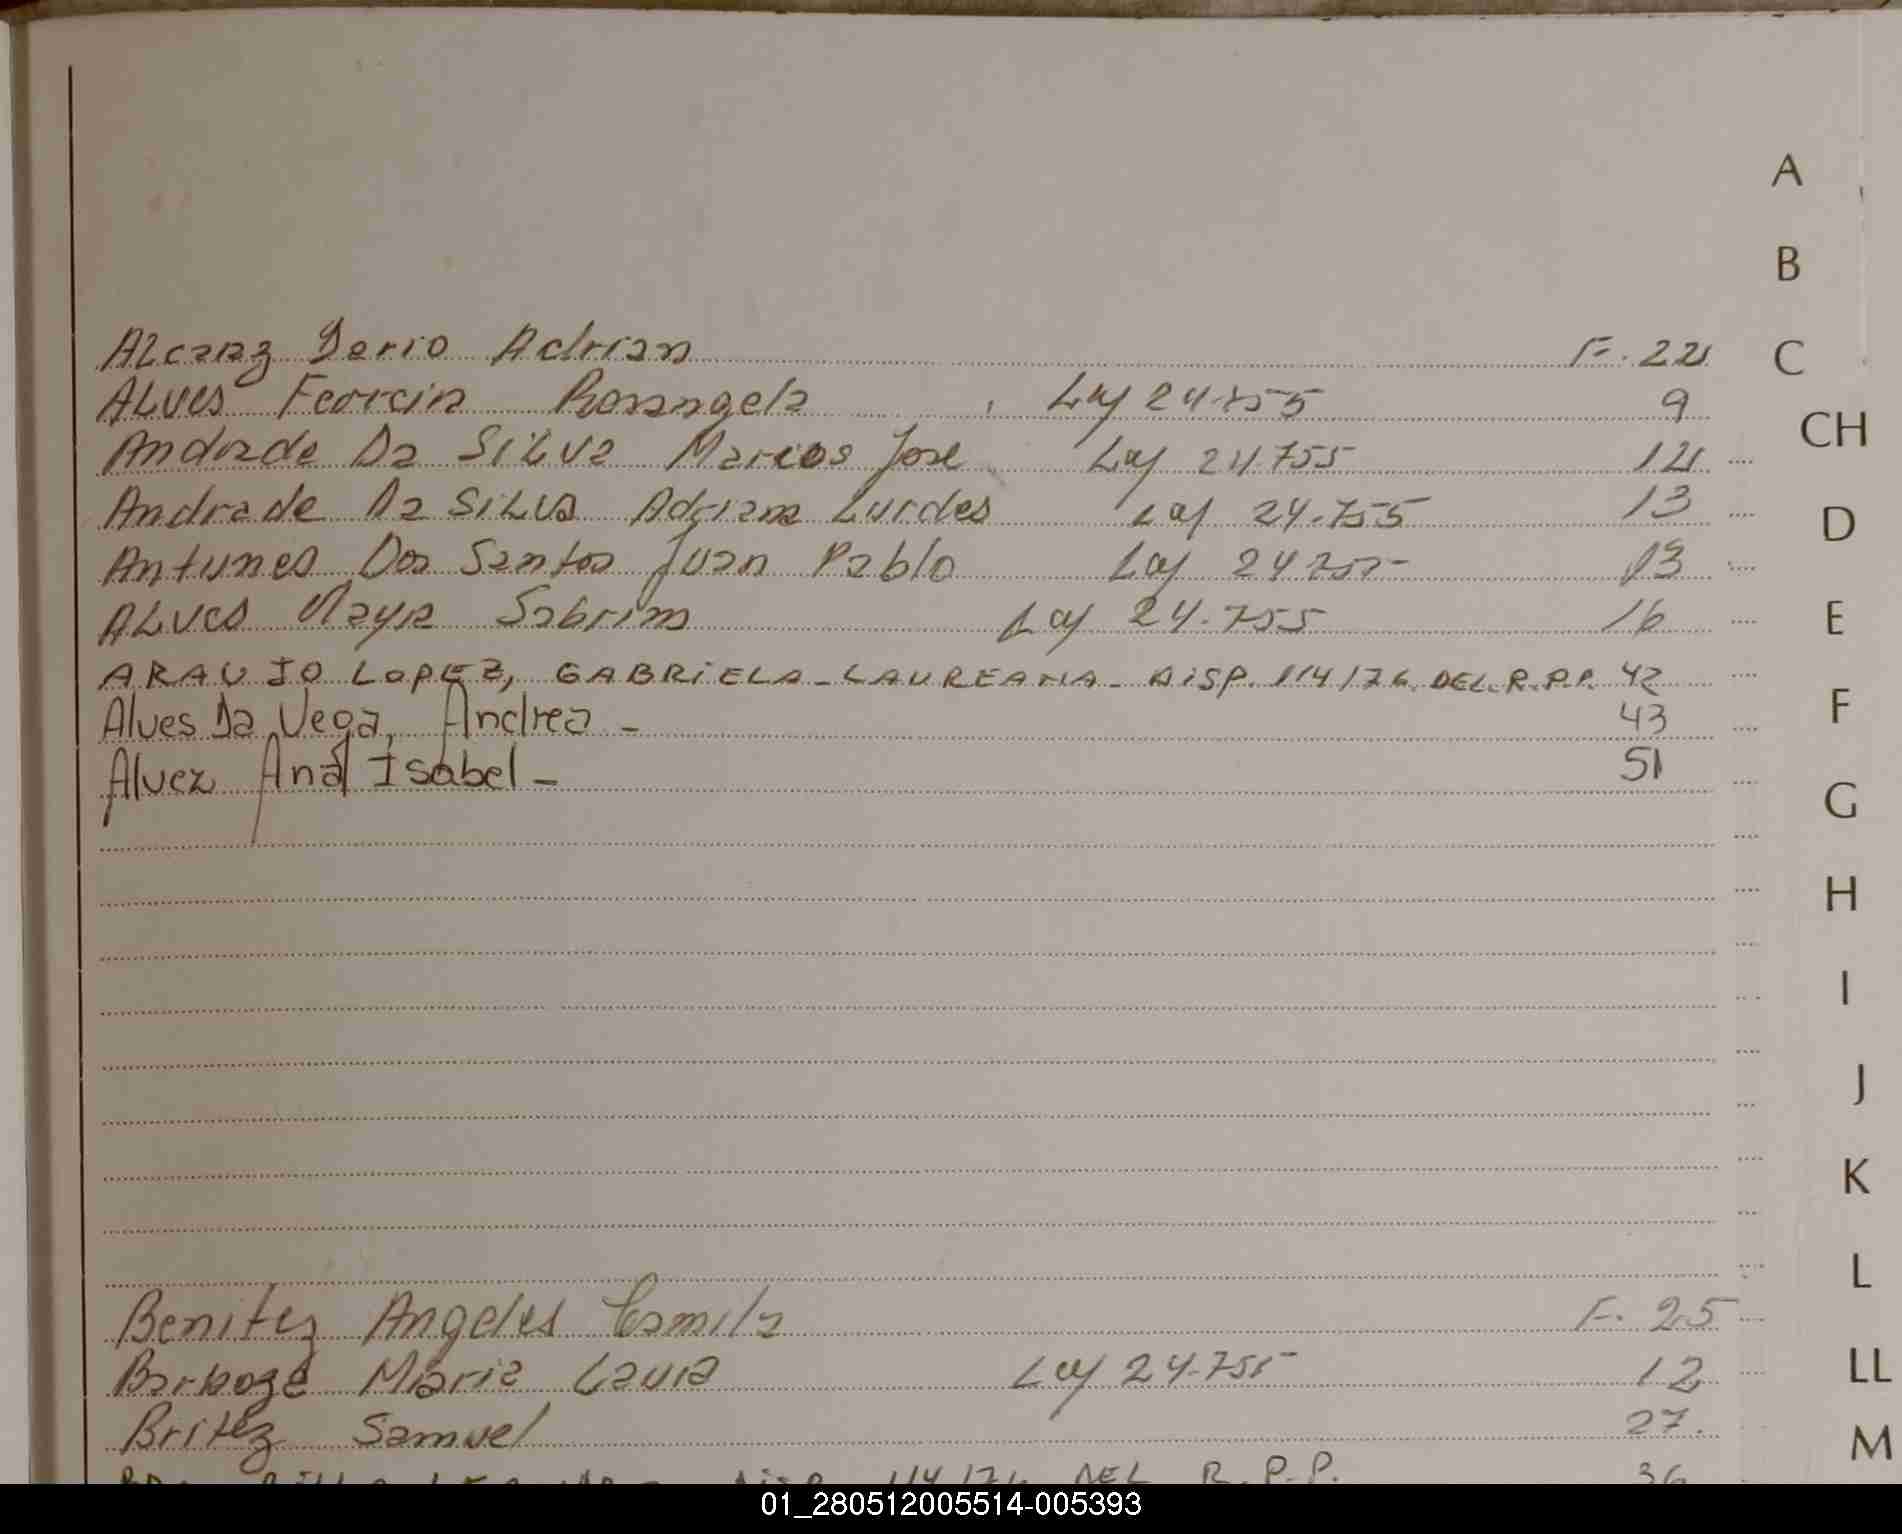 A
B
Alcaraz Dario Adrian F. 22
C
Alves Ferreira Rosangela Ley 24.755 9
CH
Andrade Da Silva Marcos Jose Ley 24.755 12
Andrade Da Silva Adriana Lurdes Ley 24.755 13
D
Antunes Dos Santos Juan Pablo Ley 24.755 13
Alves Mayra Sabrina Ley 24.755 16
E
ARAUJO LOPEZ, GABRIELA-LAUREANA- DISP. 114/76 DEL R.P.P. 42
Alves Da Vega, Andrea - 43
F
Alvez Ana Isabel - 51
G
H
I
J
K
L
Benitez Angeles Camila F. 25
Barboza Maria Laura Ley 24.755 12
LL
Britez Samuel 27.
M
114/76 DEL R.P.P. 36
01_280512005514-005393